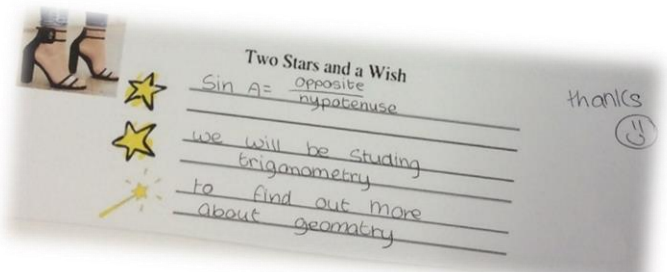 Two Stars and a Wish
Sin A= opposite
hypotenuse
we will be studing
trigonometry
to find out more
about geomatry
thanks